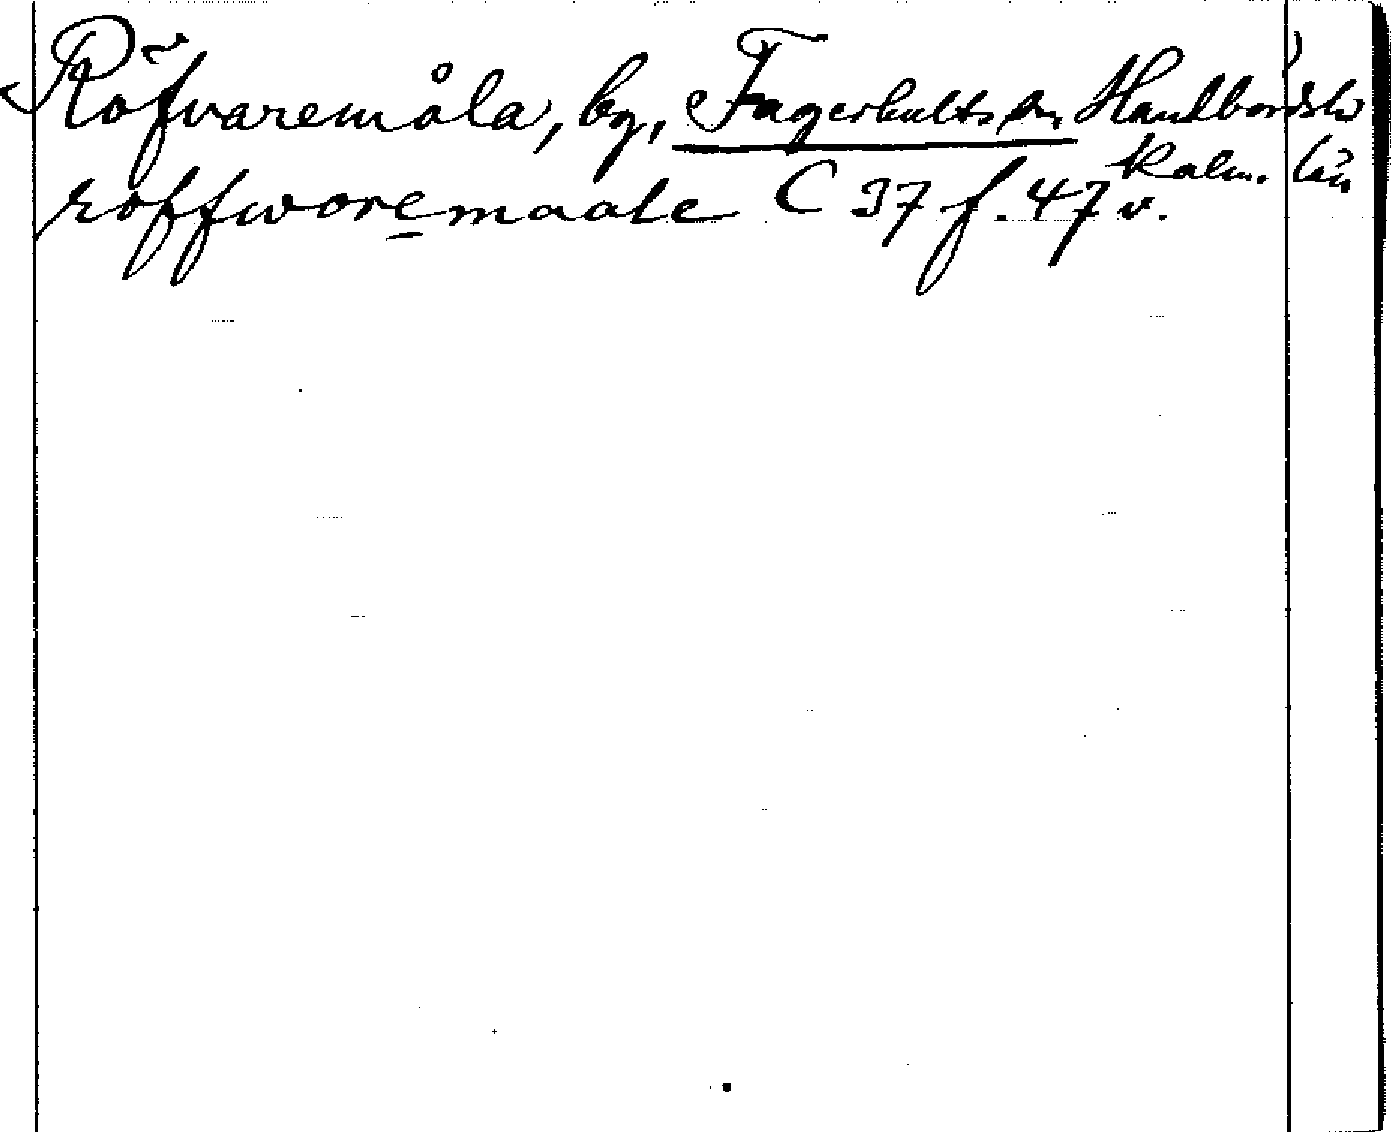 Röfvaremåla, by, Fagerhults sn, Handbörds hd
Kalm. län
roffworemaale C 37 f. 47 v.